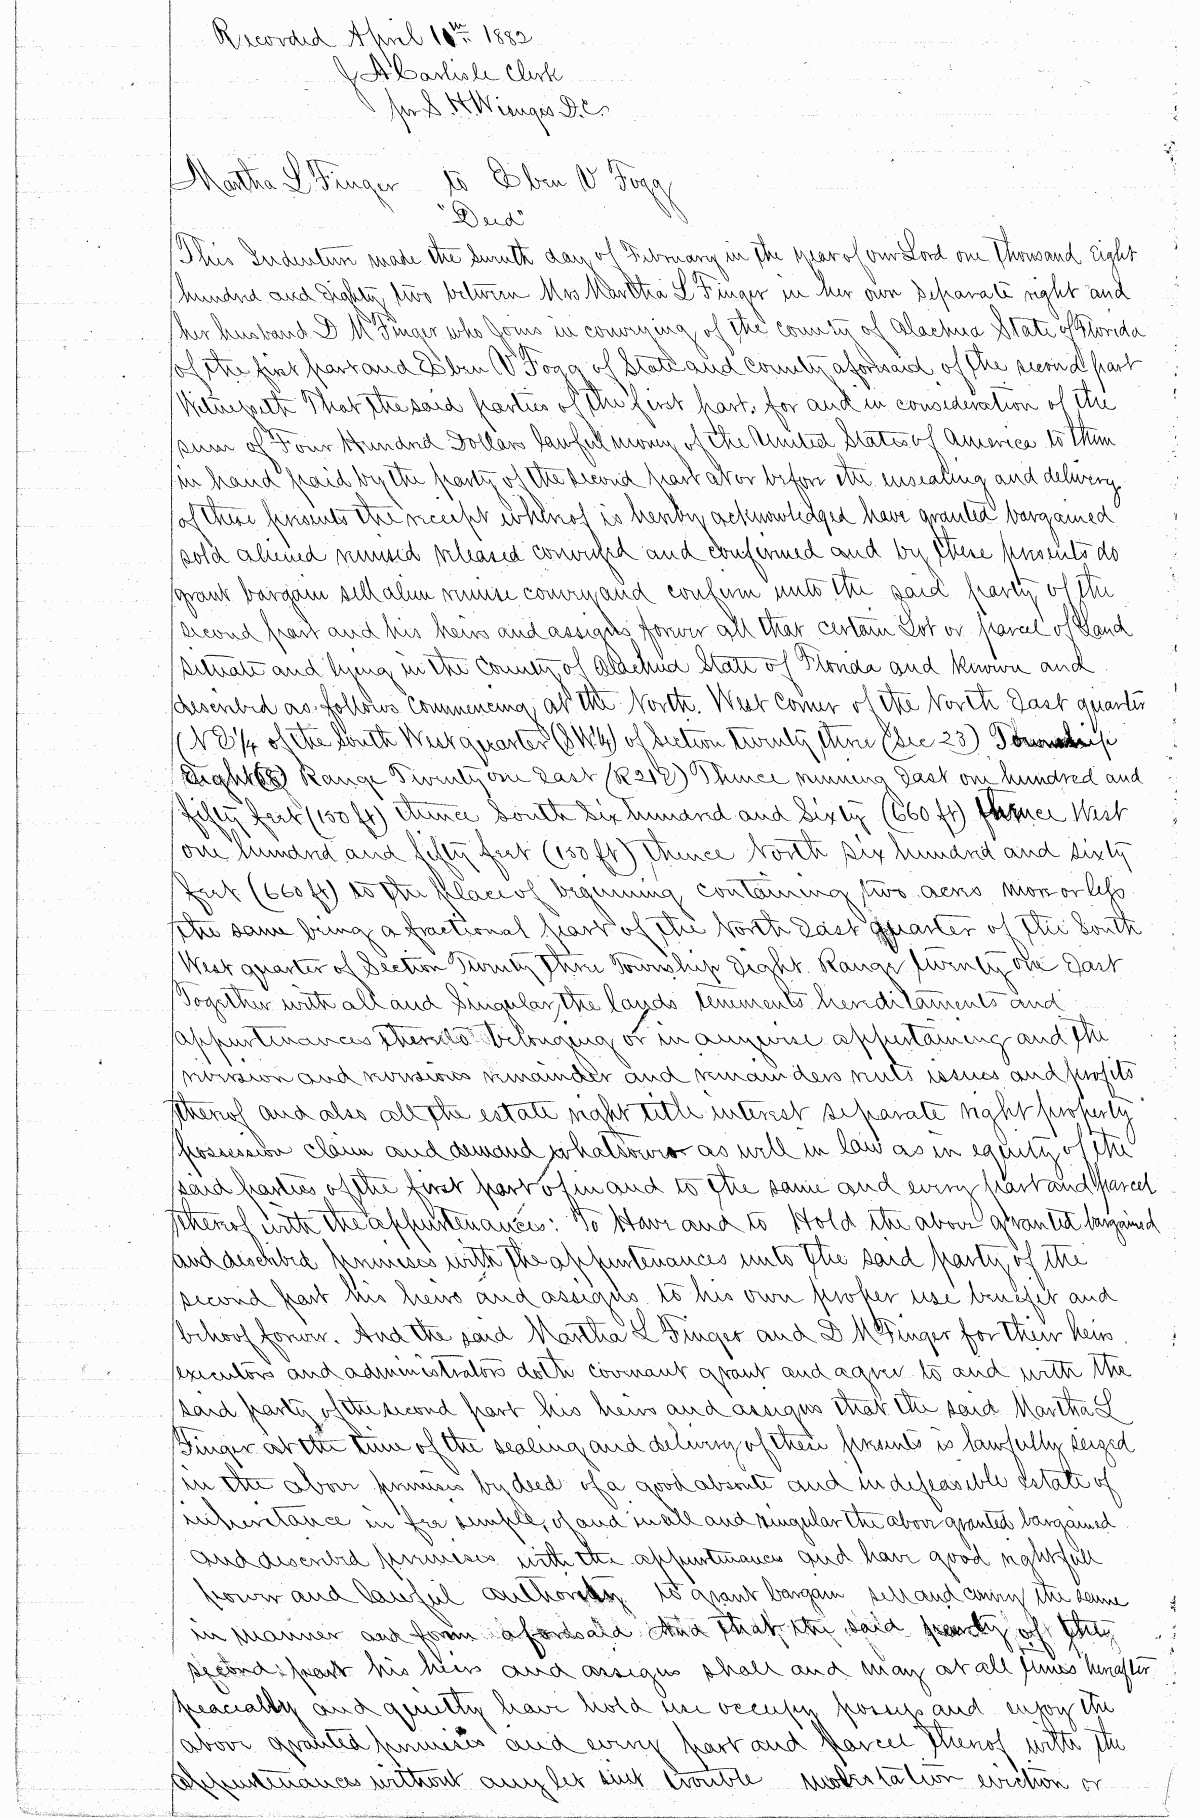 Recorded April 10th 1882
J A Carlisle Clerk
per S H Wienges D.C.
Martha L Finger to Eben V Fogg
"Deed"
This Indenture made the seventh day of February in the year of our Lord one Thousand Eight
hundred and Eighty two between Mrs Martha L Finger in her own separate right and
her husband D M Finger who Joins in conveying of the county of Alachua State of Florida
of the first part and Eben V Fogg of State and county aforesaid of the second part
Witnesseth That the said parties of the first part, for and in consideration of the
sum of Four Hundred Dollars lawful money of the United States of America to them
in hand paid by the party of the second part at or before the ensealing and delivery
of these presents the receipt whereof is hereby acknowledged have granted bargained
sold aliened remised released conveyed and confirmed and by these presents do
grant bargain sell alien remise convey and confirm unto the said party of the
second part and his heirs and assigns forever all that certain Lot or parcel of Land
situate and lying in the County of Alachua State of Florida and known and
described as follows commencing at the North West corner of the North East quarter
(N E 1/4 of the South West quarter (S W 1/4) of Section twenty three (Sec 23) Township
Eight (8) Range Twenty one East (R 21 E) Thence running East one hundred and
fifty feet (150 ft) thence South Six hundred and Sixty (660 ft) thence West
one hundred and fifty feet (150 ft) thence North six hundred and sixty
feet (660 ft) to the place of beginning containing two acres more or less
the same being a fractional part of the North East quarter of the South
West quarter of Section Twenty three Township Eight Range twenty one East
Together with all and Singular the lands tenements hereditaments and
appurtenances thereto belonging or in anywise appertaining and the
reversion and reversions remainder and remainders rents issues and profits
thereof and also all the estate right title interest separate right property
possession claim and demand whatsoever as well in law as in equity of the
said parties of the first part of in and to the same and every part and parcel
thereof with the appurtenances: To Have and to Hold the above granted bargained
and described premises with the appurtenances unto the said party of the
second part his heirs and assigns to his own proper use benefit and
behoof forever. And the said Martha L Finger and D M Finger for their heirs
executors and administrators doth covenant grant and agree to and with the
said party of the second part his heirs and assigns that the said Martha L
Finger at the time of the sealing and delivery of these presents is lawfully seized
in the above premises by deed of a good absolute and indefeasible estate of
inheritance in fee simple, of and in all and singular the above granted bargained
and described premises with the appurtenances and have good right full
power and lawful authority to grant bargain sell and convey the same
in manner and form aforesaid And that the said party of the
second part his heirs and assigns shall and may at all times hereafter
peacably and quietly have hold use occupy possess and enjoy the
above granted premises and every part and parcel thereof with the
appurtenances without any let suit trouble molestation eviction or